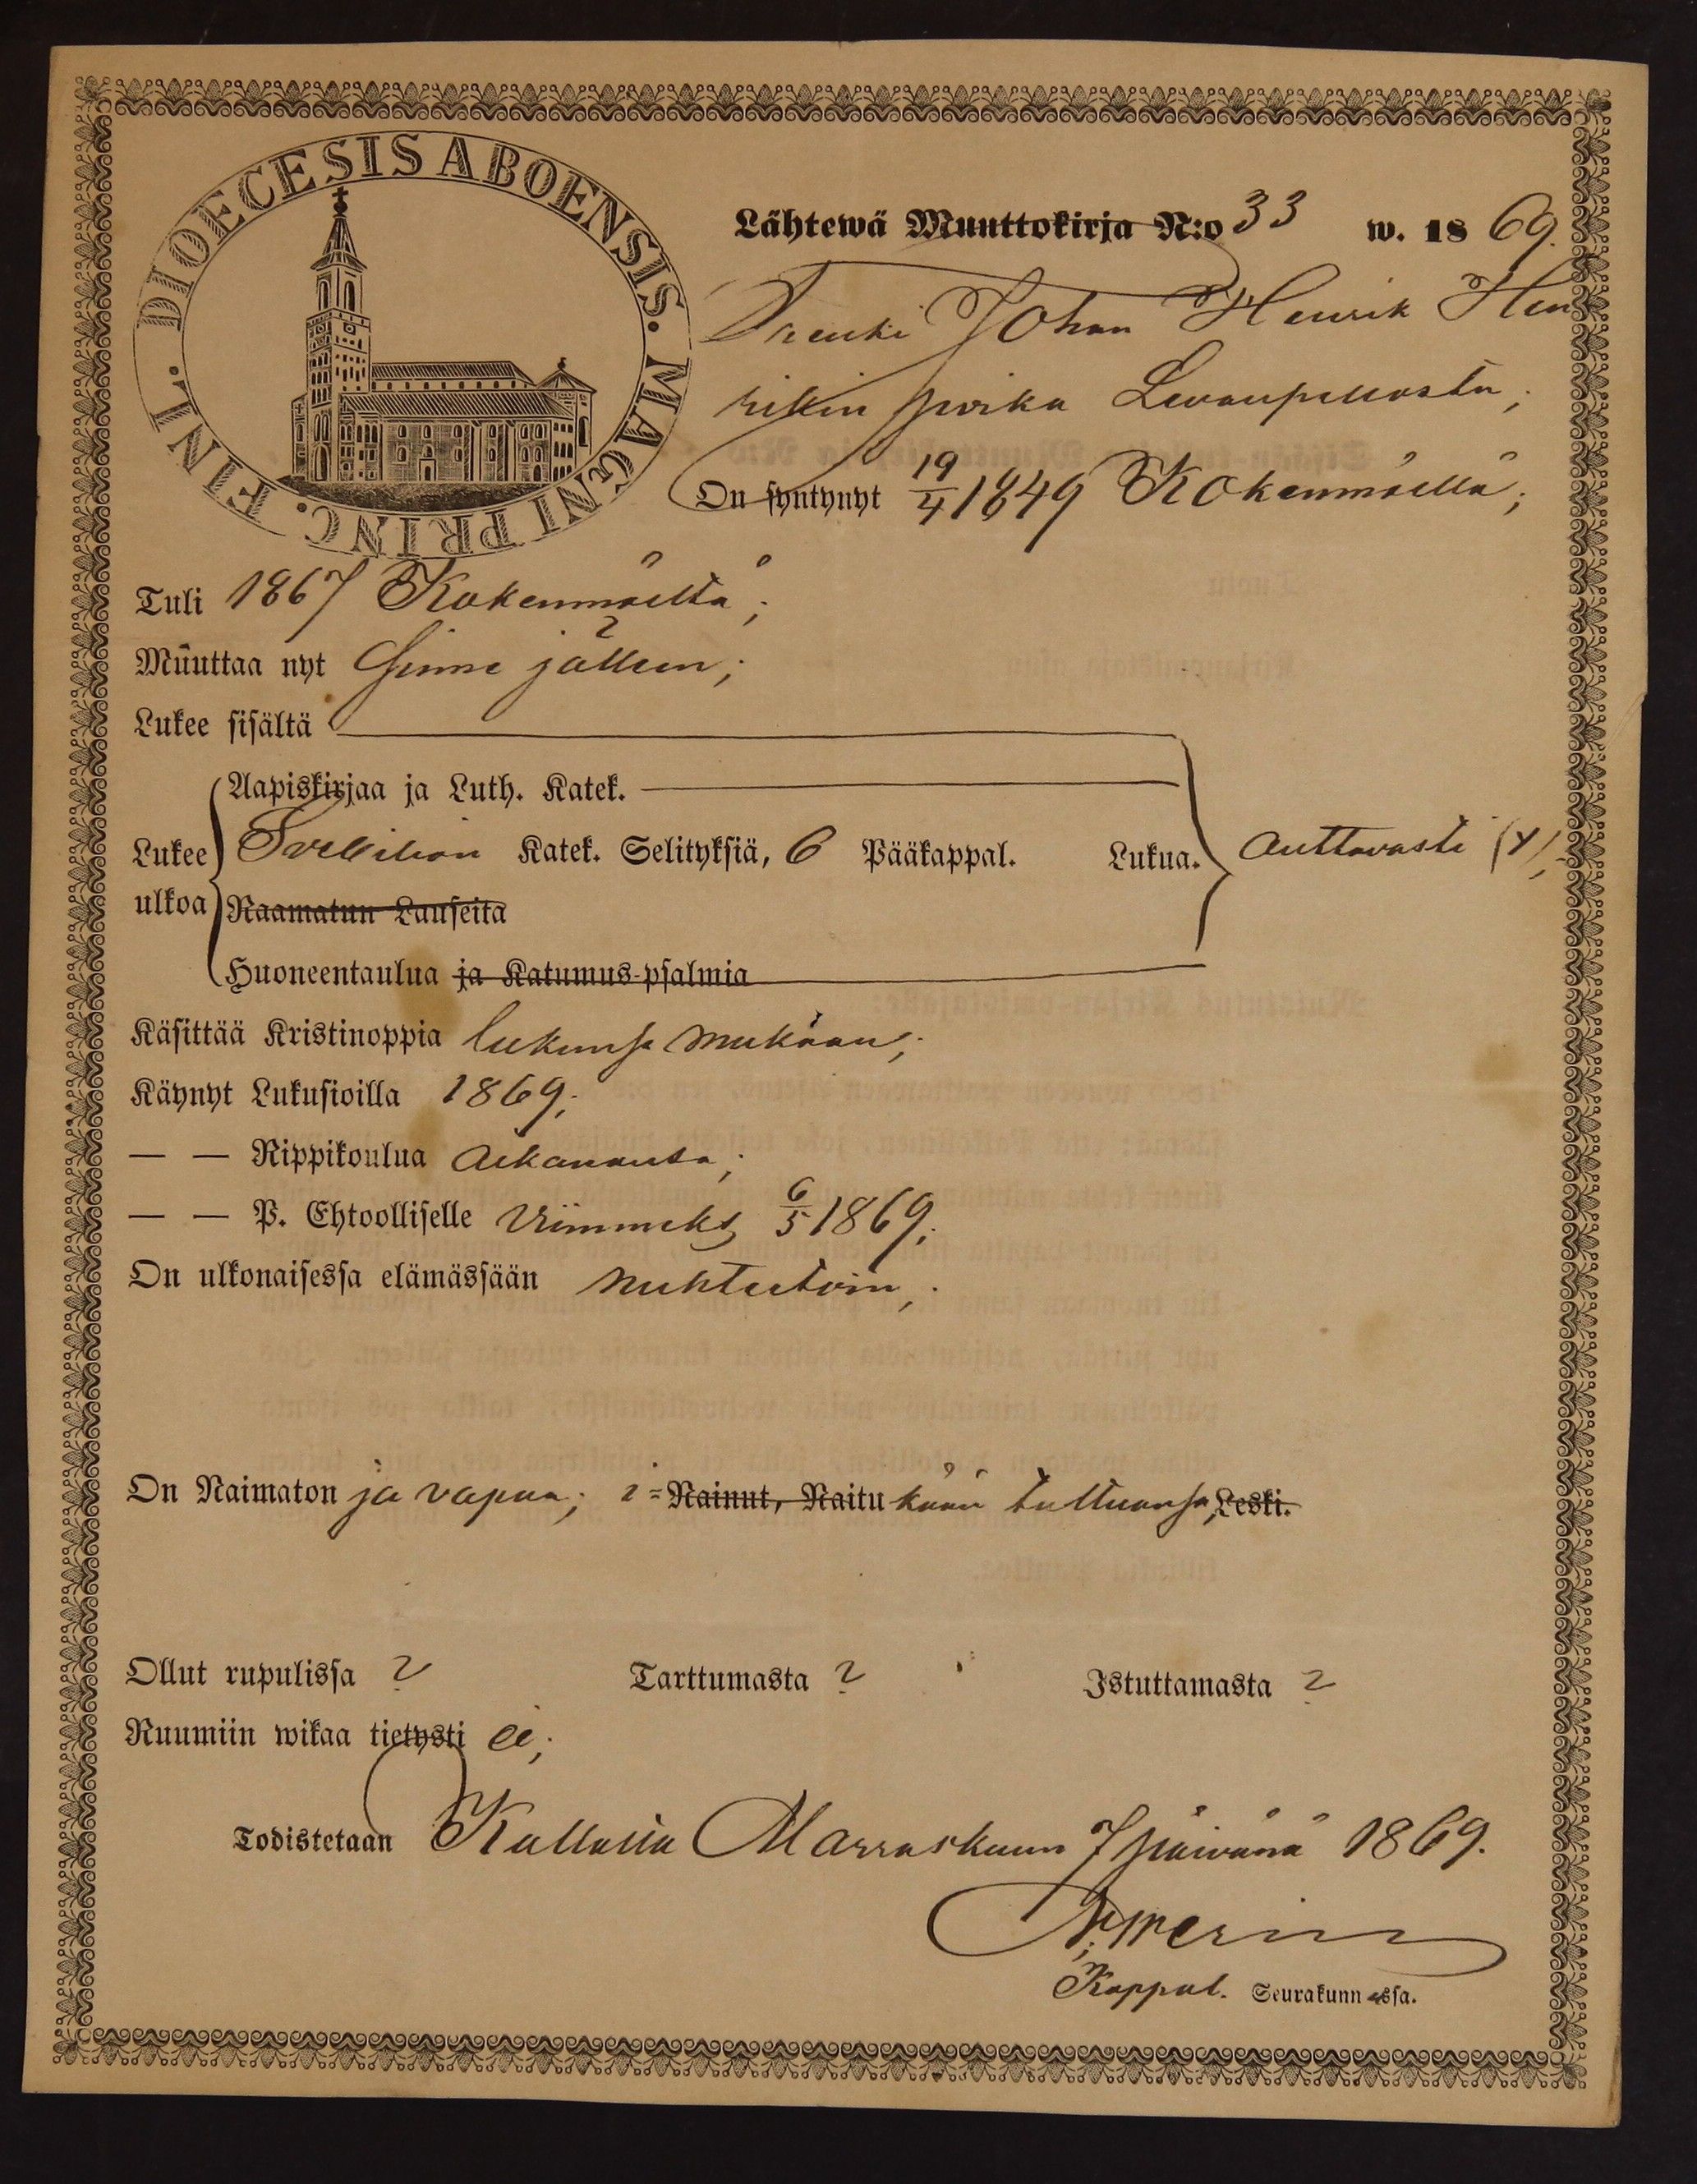 DIOECESIS ABOENSIS. MAGNI PRINC. FINL.
Lähtewä Muuttokirja N:o 33 w. 1869.
Trenki Johan Henrik Hen
rikin poika Levanpellosta;
On syntynyt 19/4 1849 Kokenmäellä;
Tuli 1867 Kokenmäeltä;
Muuttaa nyt sinne jälleen;
Lukee sisältä
Aapiskirjaa ja Luth. Katek.
Lukee Svebilion Katek. Selityksiä, 6 Pääkappal. Lukua. auttavasti
ulkoa Raamatun Lauseita
Huoneentaulua ja Katumus-psalmia
Käsittää Kristinoppia lukunsa mukaan;
Käynyt Lukusioilla 1869;
— — Rippikoulua aikanansa;
— — P. Ehtoolliselle viimmeks 6/5 1869;
On ulkonaisessa elämässään nuhteetoin;
On Naimaton ja vapaa; Nainut, Naitu kään tultuansa, Leski.
Ollut rupulissa ? Tarttumasta ? Istuttamasta ?
Ruumiin wikaa tietysti ei;
Todistetaan Kullalla Marraskuun 7 päivänä 1869.
Kappal. Seurakunnassa.